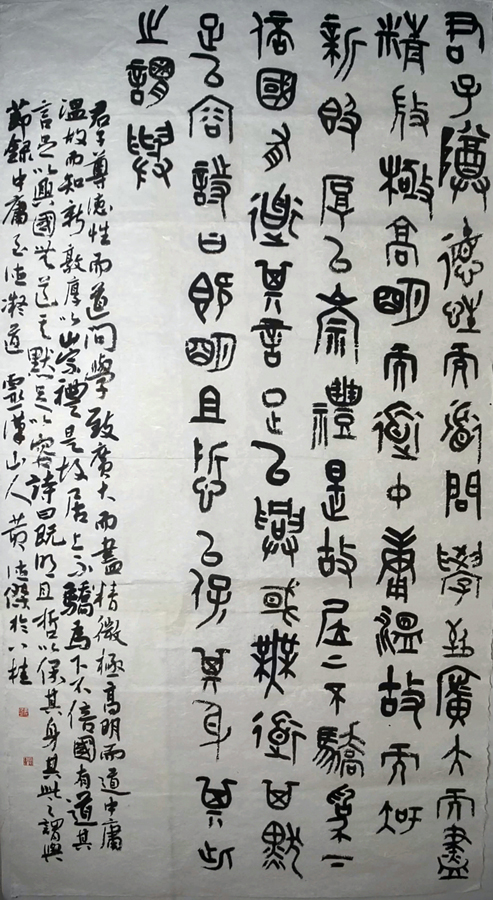 君子尊德性而道問學致廣大而盡
精微極高明而道中庸溫故而知
新敦厚以崇禮是故居上不驕為下
不倍國有道其言足以興國無道其默
足以容詩曰既明且哲以保其身其此
之謂與
君子尊德性而道問學致廣大而盡精微極高明而道中庸
溫故而知新敦厚以崇禮是故居上不驕為下不倍國有道其
言足以興國無道其默足以容詩曰既明且哲以保其身其此之謂與
節錄中庸至德凝道 雲漢山人 黃德傑於八桂